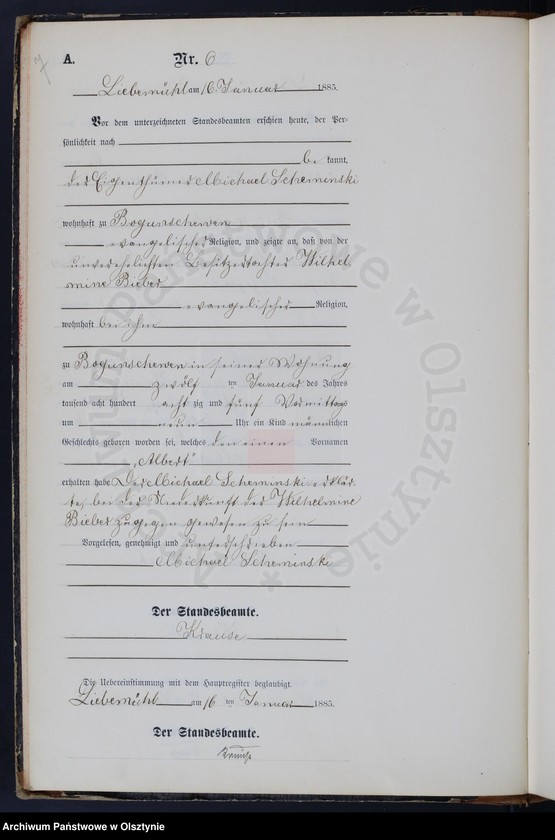 7
A. Nr. 6
Liebemühl am 16. Januar 1885.
Vor dem unterzeichneten Standesbeamten erschien heute, der Per-
sönlichkeit nach
be kannt,
der Eigenthümer Michael Scheminski
wohnhaft zu Bogunschewen
evangelischer Religion, und zeigte an, daß von der
unverehelichten Besitzertochter Wilhel
mine Bieber
evangelischer Religion,
wohnhaft bei ihm
zu Bogunschewen in seiner Wohnung
am zwölf ten Januar des Jahrs
tausend acht hundert acht zig und fünf Vormittags
um neun Uhr ein Kind männlichen
Geschlechts geboren worden sei, welches den einen Vornamen
„Albert"
erhalten habe Der Michael Scheminski erklär
te, bei der Niederkunft der Wilhelmine
Bieber zugegen gewesen zu sein
Vorgelesen, genehmigt und unterschrieben
Michael Scheminski
Der Standesbeamte.
Krause
Die Uebereinstimmung mit dem Hauptregister beglaubigt.
Liebemühl am 16 ten Januar 1885.
Der Standesbeamte.
Krause
Archiwum Państwowe w Olsztynie
Archiwum Państwowe w Olsztynie